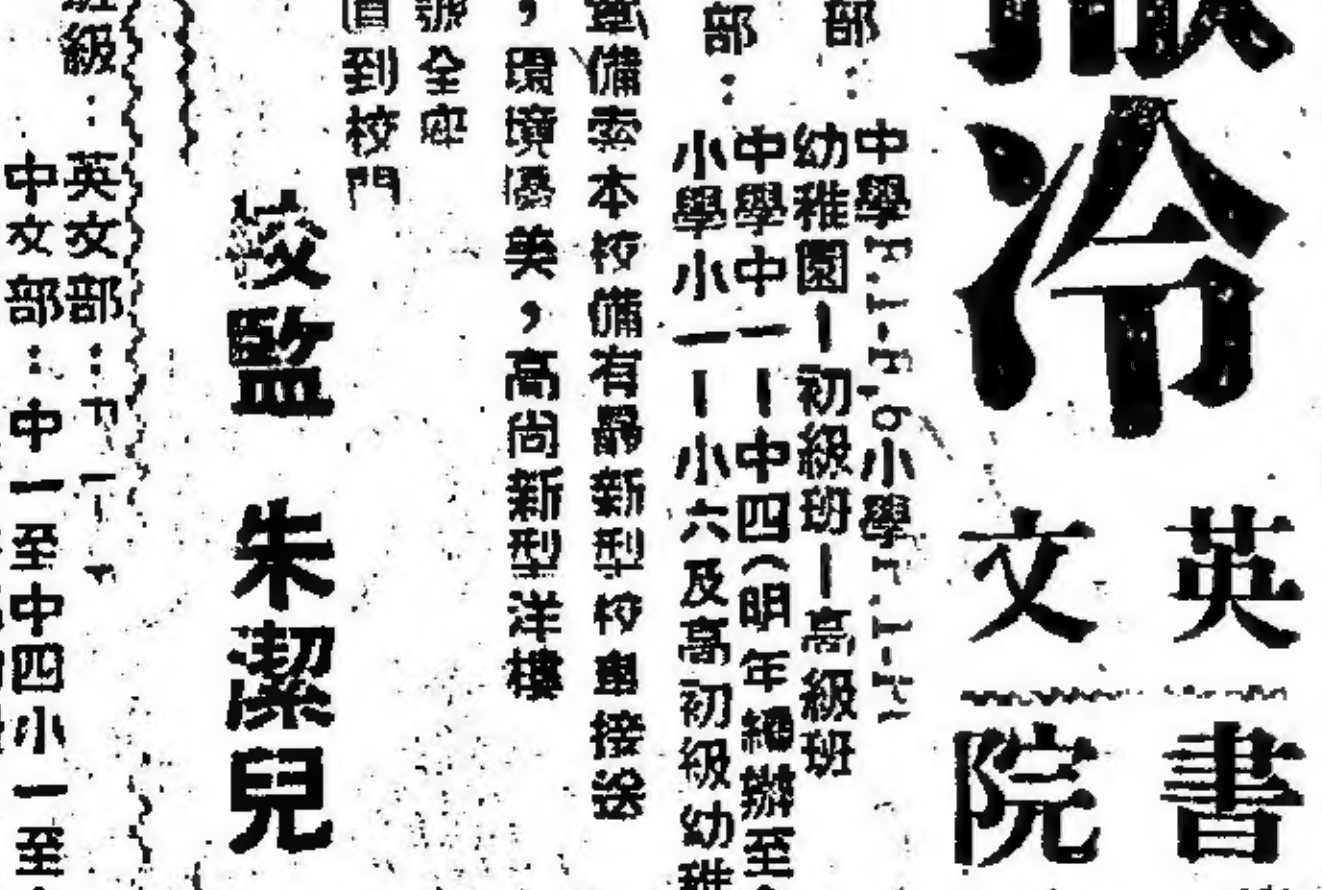 冷
英文書院
部：中學F.1-F.6小學
幼稚園—初級班—高級班
部：中學中一—中四（明年續辦至
小學小一—小六及高初級幼稚
備索本校備有最新型校車接送
，環境優美，高尚新型洋樓
號全座
到校門
校監 朱潔兒
級：英文部：
中文部：中一至中四小一至